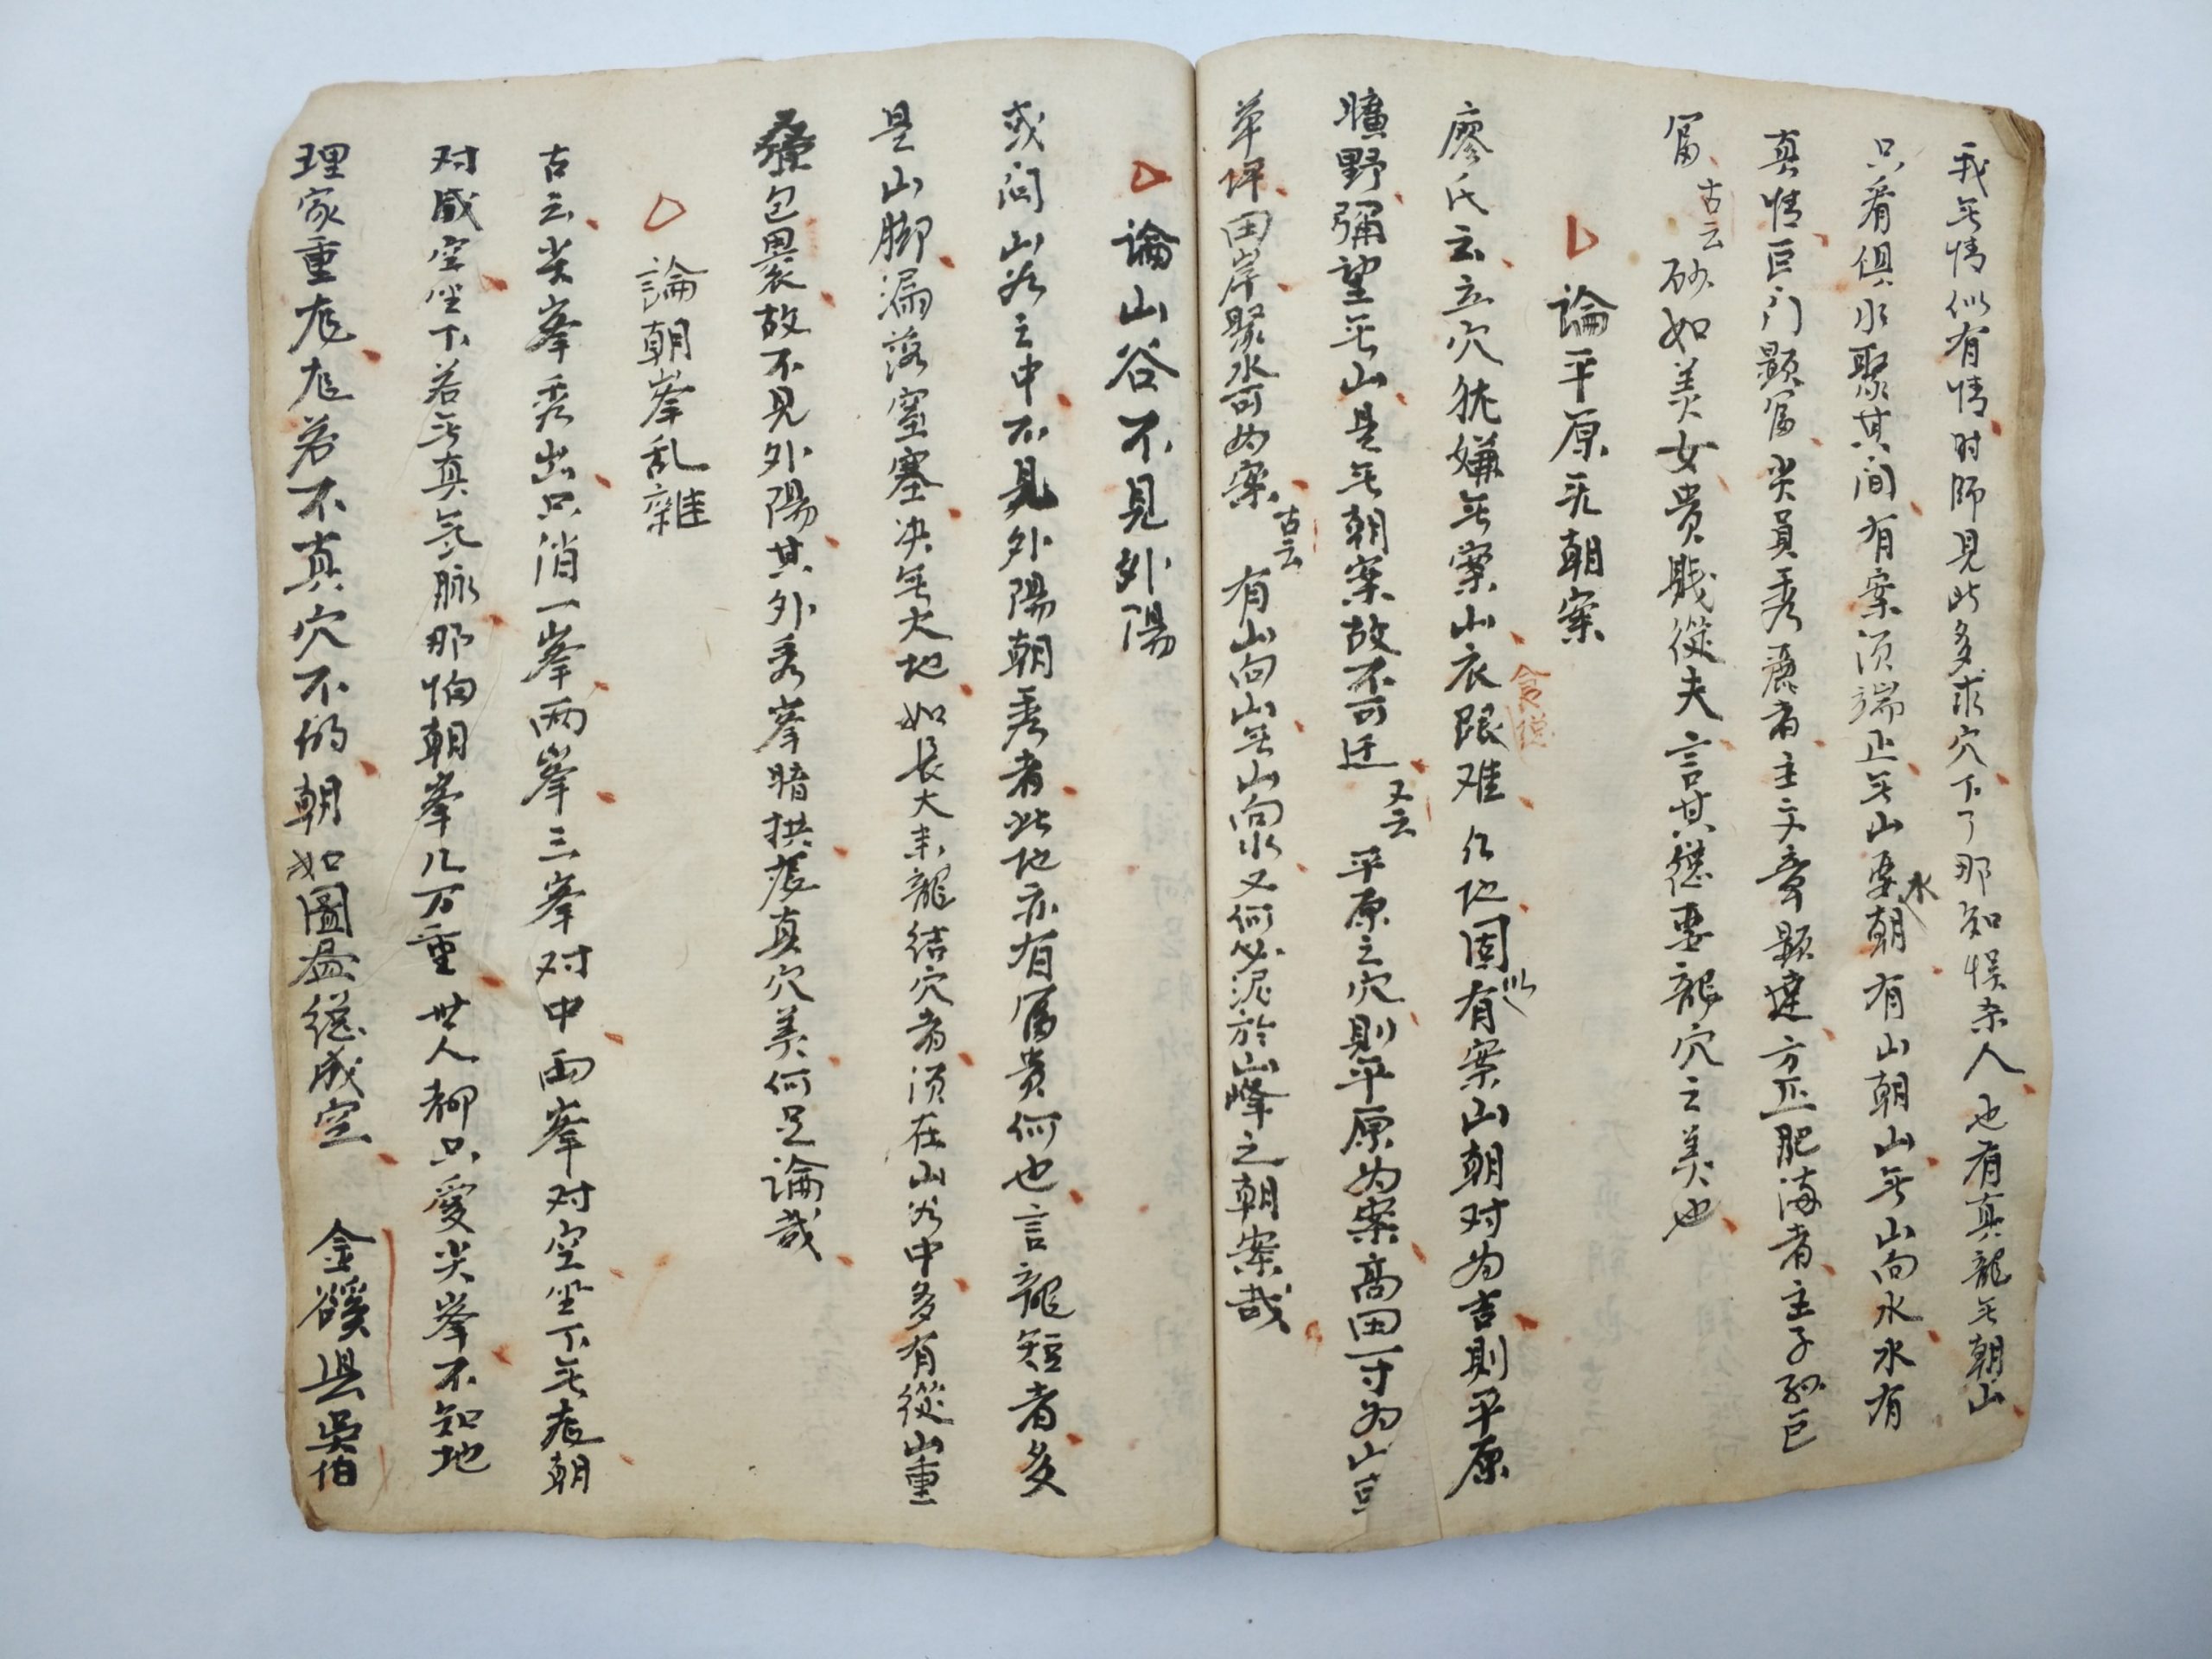 我无情似有情时师見此多求穴下了那知悮杀人也有真龍无朝山
只看俱水聚其间有案须端正无山要水朝有山朝山无山向水水有
真情巨门顕富尖員秀麗者主文章顕達方正肥满者主子孙巨
富古云砂如美女贵賤從夫言其總要龍穴之美也
論平原无朝案
廖氏云立穴犹嫌无案山衣跟难食總化地固以有案山朝对为吉則平原
曠野彌望无山是无朝案故不可迁又云平原之穴則平原为案高田一寸为山
草坪田岸聚水可为案古云有山向山无山向水又何必泥於山峰之朝案哉
論山谷不見外陽
或问山谷之中不見外陽朝秀者此地亦有富贵何也言龍短者多
是山脚漏落窒塞决无大地如長大来龍結穴者须在山谷中多有從山重
叠包裹故不見外陽其外秀峯暗拱真穴美何足論哉
論朝峯乱雜
古云尖峯秀出只消一峯两峯三峯对中両峯对空坐下无龙朝
对成空坐下若无真氣脉那怕朝峯几万重世人都只愛尖峯不知地
理家重龙龙若不真穴不的朝如圖畫總成空 金谿县吳伯